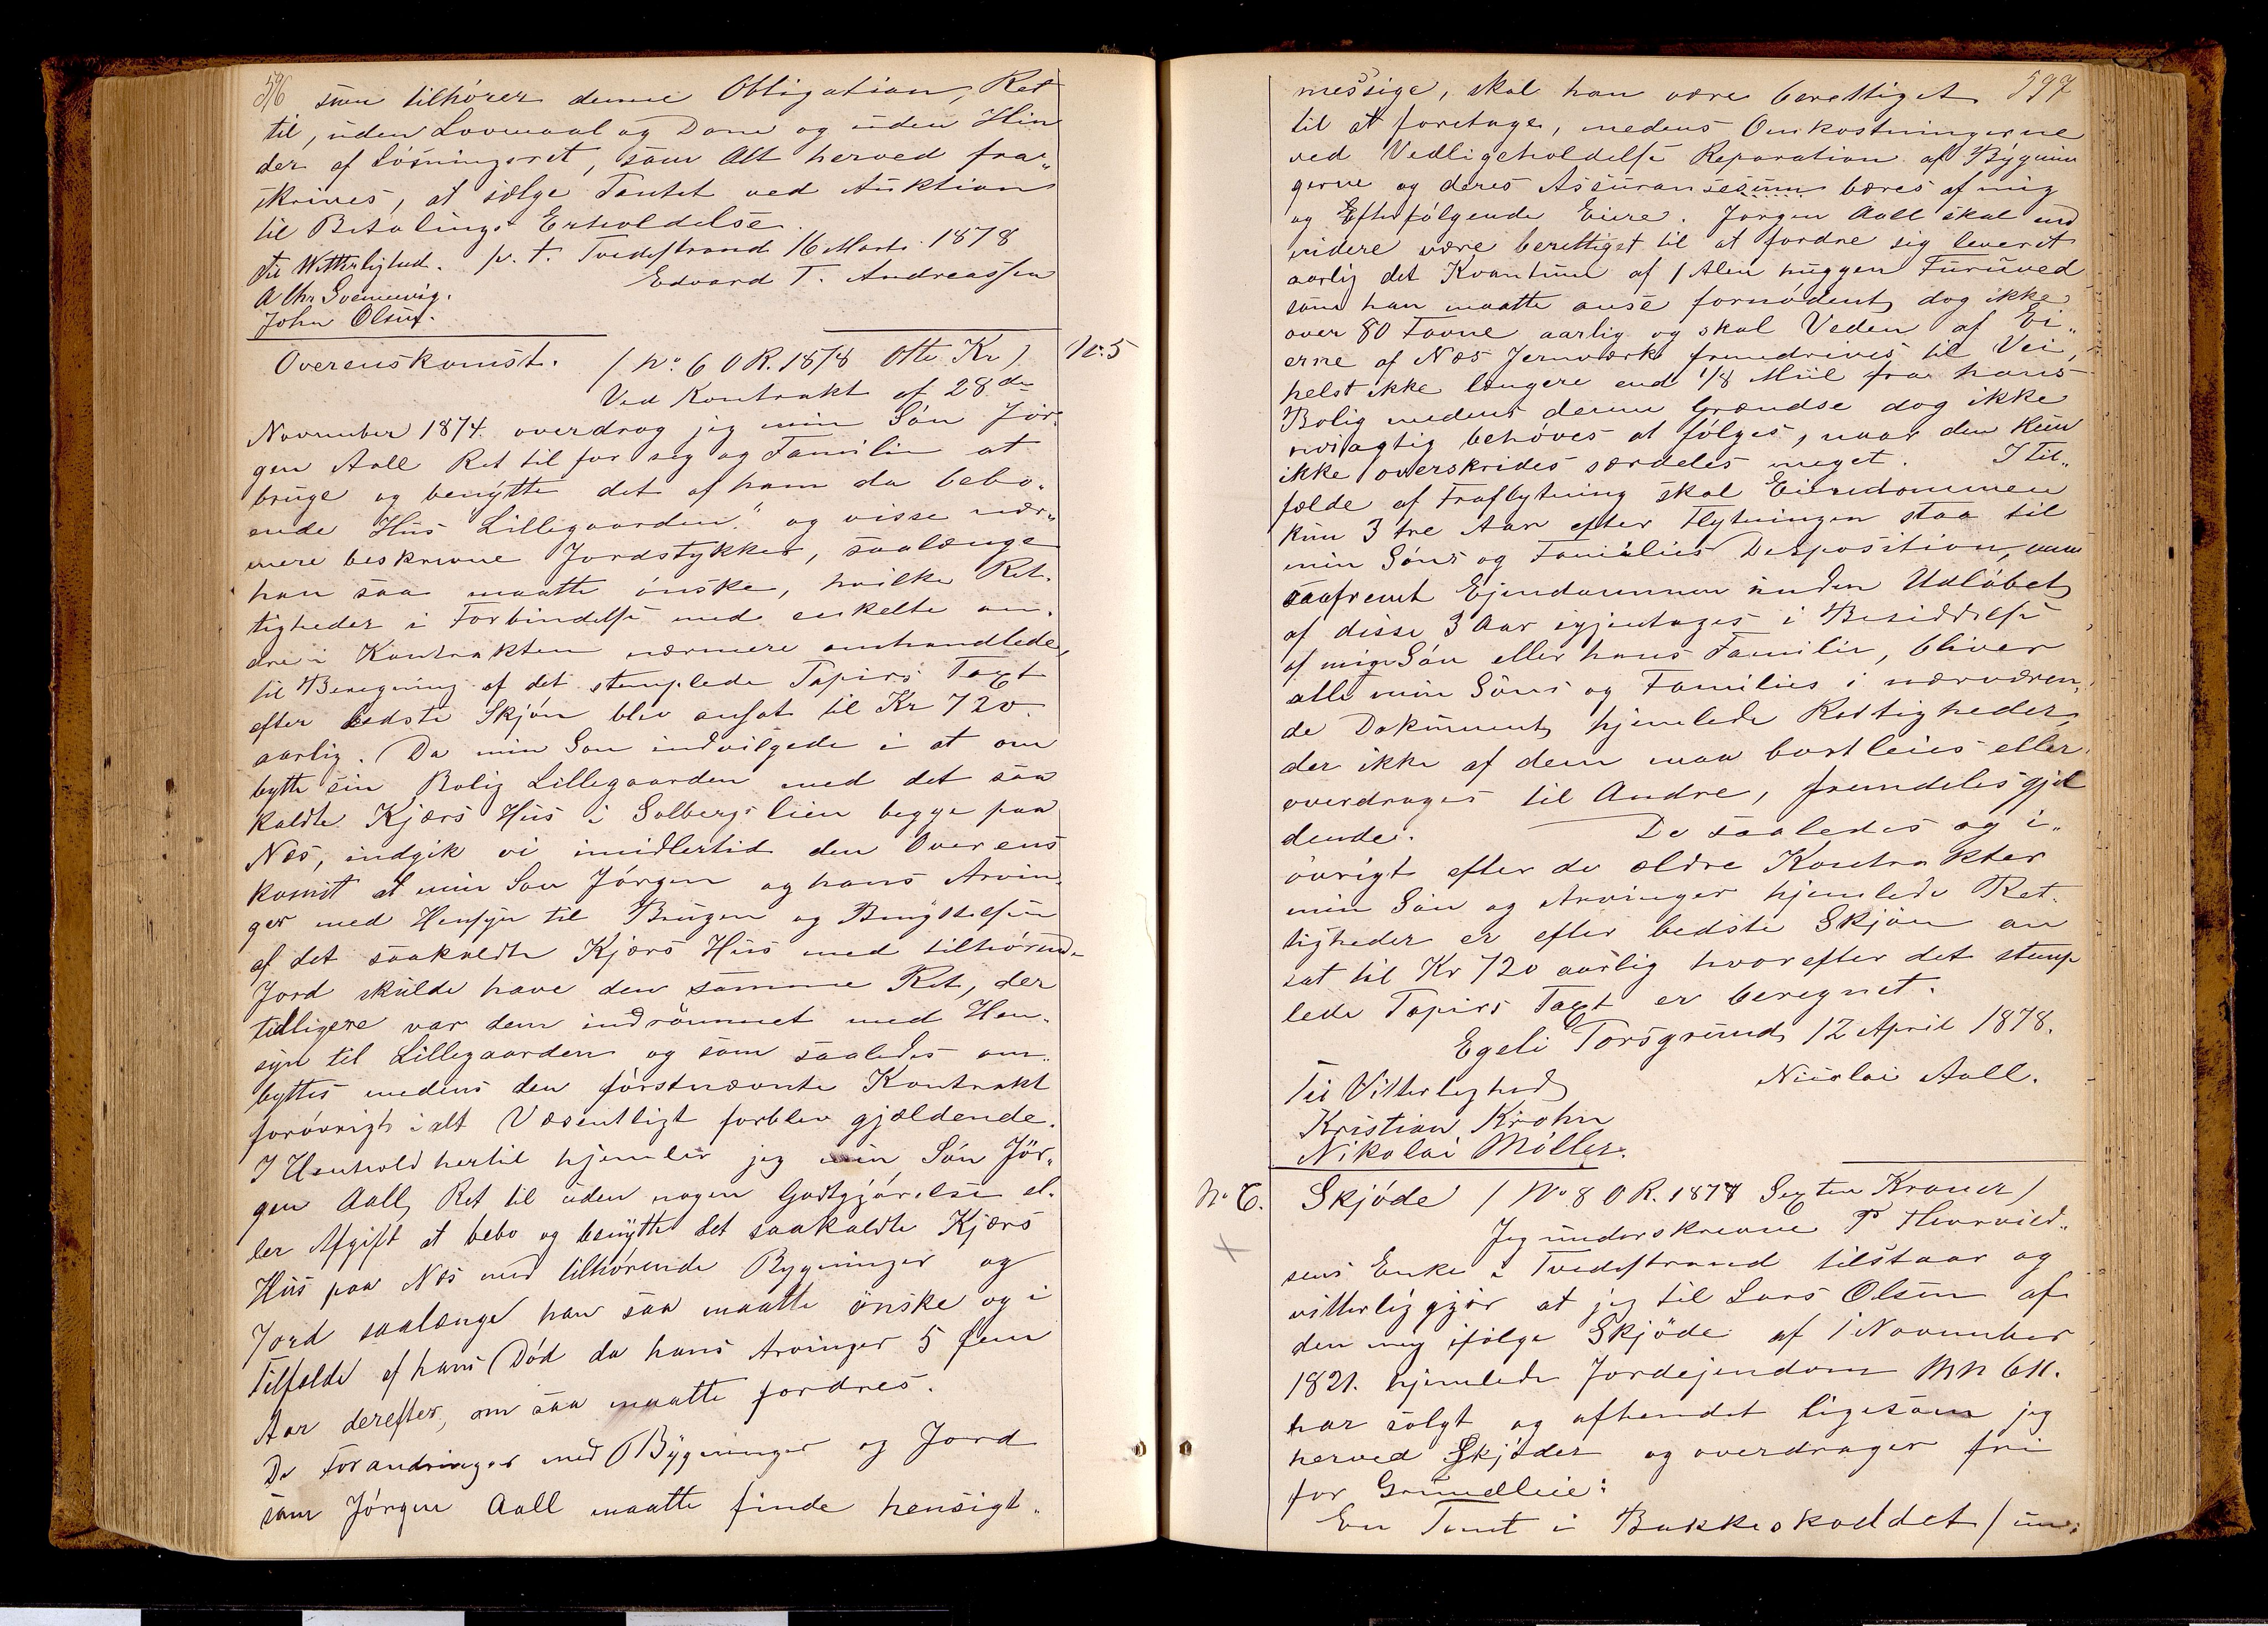 576
som tilhører denne Obligation, Ret
til, uden Lovmaal og Dom og uden Hin
der af Løsningsret, som Alt herved fra„
skrives, at sælge Pantet ved Auktion
til Betalings Erholdelse.
p. t. Tvedestrand 16 Marts 1878
Til Vitterlighed.
Edvard T. Andreassen
A Chr Svennevig.
John Olsen.
No. 5
Overenskomst. / No. 6 O R. 1878 Otte Kr /
Ved Kontrakt af 28de
November 1874. overdrog jeg min Søn Jør„
gen Aall Ret til for sig og Familie at
bruge og benytte det af ham da bebo„
ende Huus Lillegaarden" og visse nær„
mere beskrevne Jordstykker, saalænge
han saa maatte ønske, hvilke Ret„
tigheder i Forbindelse med enkelte an„
dre i Kontrakten nærmere omhandlede,
til Beregning af det stemplede Papirs Taxt
efter bedste Skjøn blev ansat til Kr 720
aarlig. Da min Søn indvilgede i at om
bytte sin Bolig Lillegaarden med det saa
kaldte Kjærs Hus i Solbergs lien begge paa
Næs, indgik vi imidlertid den Overens
komst at min Søn Jørgen og hans Arvin„
ger med Hensyn til Brugen og Benyttelsen
af det saakaldte Kjærs Hus med tilhørende
Jord skulde have den samme Ret, der
tidligere var dem indrømmet med Hen„
syn til Lillegaarden og som saaledes om„
byttes medens den førstnævnte Kontrakt
forøvrigt i alt Væsentligt forblev gjældende.
I Henhold hertil hjemler jeg min Søn Jør„
gen Aall, Ret til uden nogen Godtgjørelse el„
ler Afgift at bebo og benytte det saakaldte Kjærs
Hus paa Næs med tilhørende Bygninger og
Jord saalænge han saa maatte ønske og i
Tilfælde af hans Død da hans Arvinger 5 fem
Aar derefter, om saa maatte fordres.
De Forandringer med Bygninger og Jord
som Jørgen Aall maatte finde hensigt„
577
messige, skal han være berettiget
til at foretage, medens Omkostningerne
ved Vedligeholdelse Reparation af Bygnin
gerne og deres Assuransesum bæres af mig
og Efterfølgende Eiere. Jørgen Aall skal end
videre være berettiget til at fordre sig leveret
aarlig det Kvantum af 1 Alen huggen Furuved
som han maatte anse fornødent, dog ikke
over 80 Favne aarlig og skal Veden af Ei„
erne af Næs Jernværk fremdrives til Vei,
helst ikke længere end 1/8 Miil fra hans
Bolig medens denne Grændse dog ikke
nøiagtig behøves at følges, naar den kun
ikke overskrides særdeles meget. I Til„
fælde af Fraflytning skal Eiendommen
kun 3 tre Aar efter Flytningen staa til
min Søns og Families Desposition, men
saafremt Ejendommen inden Udløbet
af disse 3 Aar igjentages i Besiddelse
af min Søn eller hans Familie, bliver
alle min Søns og Families i nærværen„
de Dokument hjemlede Rettigheder,
der ikke af dem maa bortleies eller
overdrages til Andre, fremdeles gjæl
dende. De saaledes og i„
øvrigt efter de ældre Kontrakter
min Søn og Arvinger hjemlede Ret„
tigheder er efter bedste Skjøn an
sat til Kr 720 aarlig hvorefter det stemp
lede Papirs Taxt er beregnet.
Egeli Porsgrund, 12 April 1878.
Til Vitterlighed
Nicolai Aall.
Kristian Krohn
Nikolai Møller.
No 6.
Skjøde / No 8 O R. 1878 Sexten Kroner /
Jeg underskrevne P Thorvild„
sens Enke i Tvedestrand tilstaar og
vitterliggjør at jeg til Lars Olsen af
den mig ifølge Skjøde af 1 November
1821. hjemlede Jordejendom M N 611.
har solgt og afhændet ligesom jeg
herved Skjøder og overdrager fri
for Grundleie:
En Tomt i Bakkeskoddet / un„